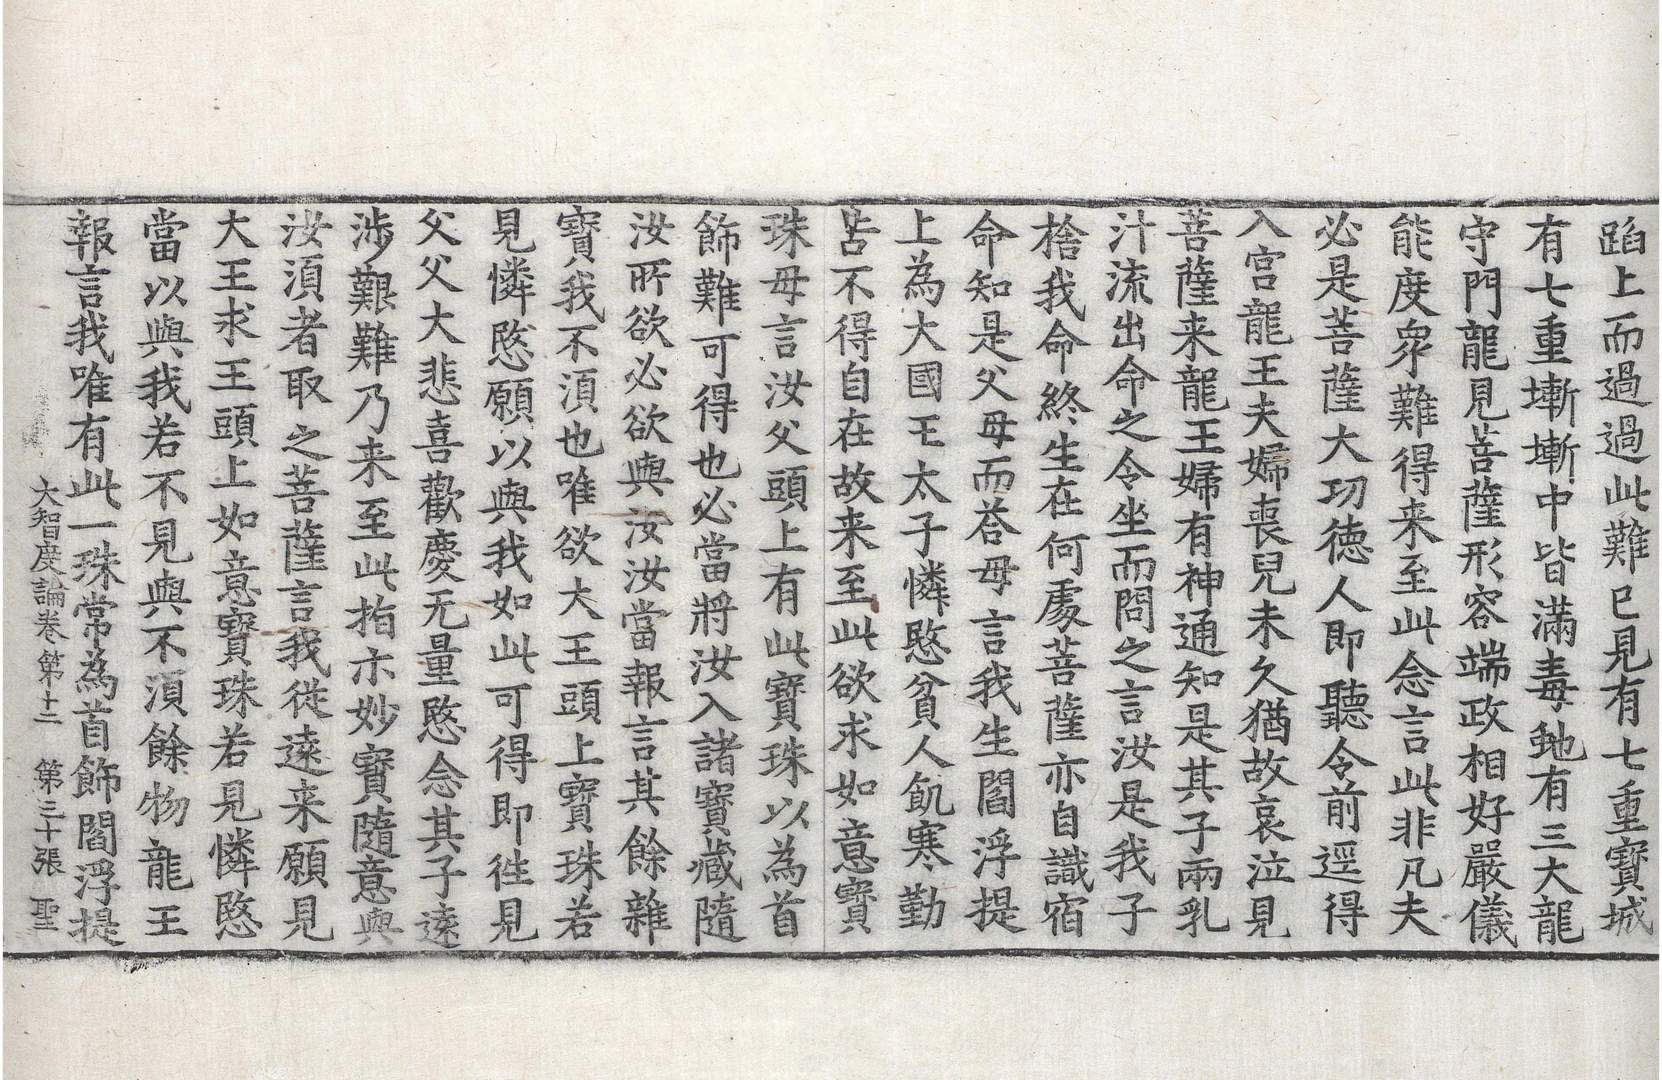 蹈上而過過此難已見有七重寶城
有七重塹塹中皆滿毒虵有三大龍
守門龍見菩薩形容端政相好嚴儀
能度衆難得来至此念言此非凡夫
必是菩薩大功徳人即聽令前逕得
入宫龍王夫婦喪兒未久猶故哀泣見
菩薩来龍王婦有神通知是其子兩乳
汁流出命之令坐而問之言汝是我子
捨我命終生在何處菩薩亦自識宿
命知是父母而荅母言我生閻浮提
上為大國王太子憐愍貧人飢寒勤
苦不得自在故来至此欲求如意寶
珠母言汝父頭上有此寶珠以為首
飾難可得也必當將汝入諸寶藏隨
汝所欲必欲與汝汝當報言其餘雜
寶我不湏也唯欲大王頭上寶珠若
見憐愍願以與我如此可得即徃見
父父大悲喜歡慶无量愍念其子遠
涉艱難乃来至此指示妙寶隨意與
汝湏者取之菩薩言我従遠来願見
大王求王頭上如意寶珠若見憐愍
當以與我若不見與不湏餘物龍王
報言我唯有此一珠常為首飾閻浮提
大智度論卷第十二 第三十張 聖